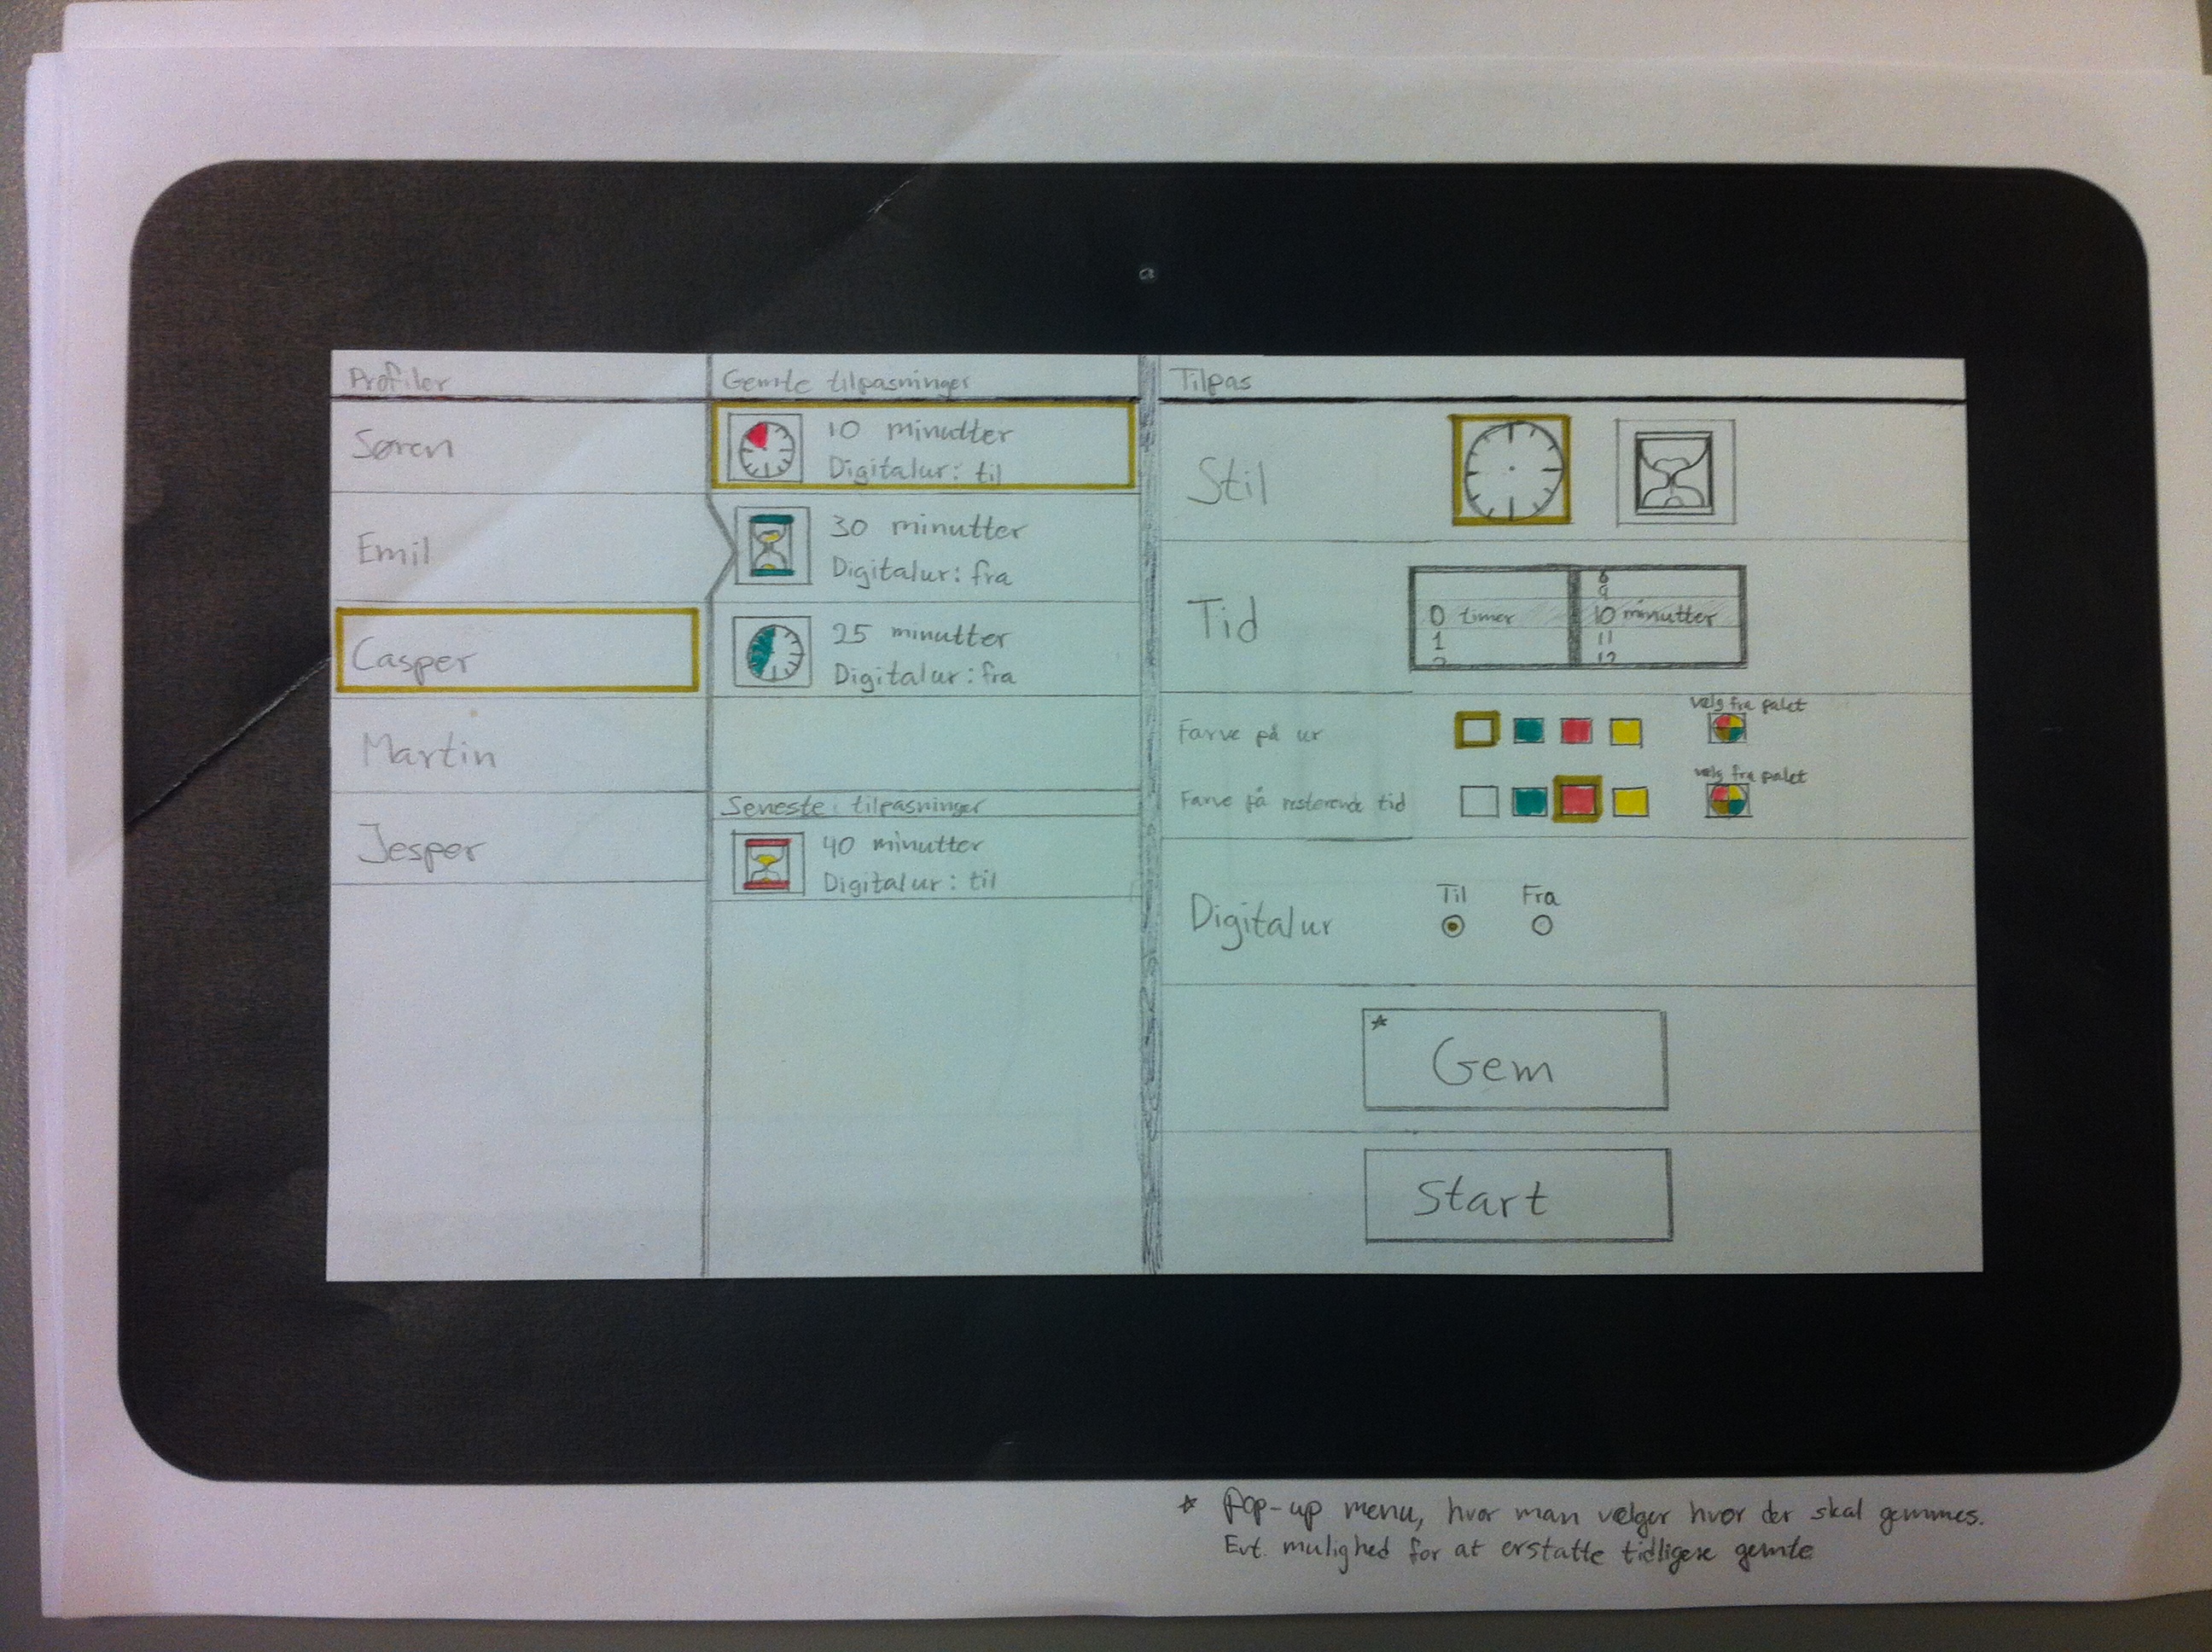 Profiler
Søren
Emil
Casper
Martin
Jesper
Gemte tilpasninger
10 minutter
Digitalur: til
30 minutter
Digitalur: fra
25 minutter
Digitalur: fra
Seneste tilpasninger
40 minutter
Digitalur: til
Tilpas
Stil
Tid
0 timer
1
2
8
9
10 minutter
11
12
Farve på ur
vælg fra palet
Farve på resterende tid
vælg fra palet
Digitalur
Til Fra
* Gem
Start
* Pop-up menu, hvor man vælger hvor der skal gemmes.
Evt. mulighed for at erstatte tidligere gemte